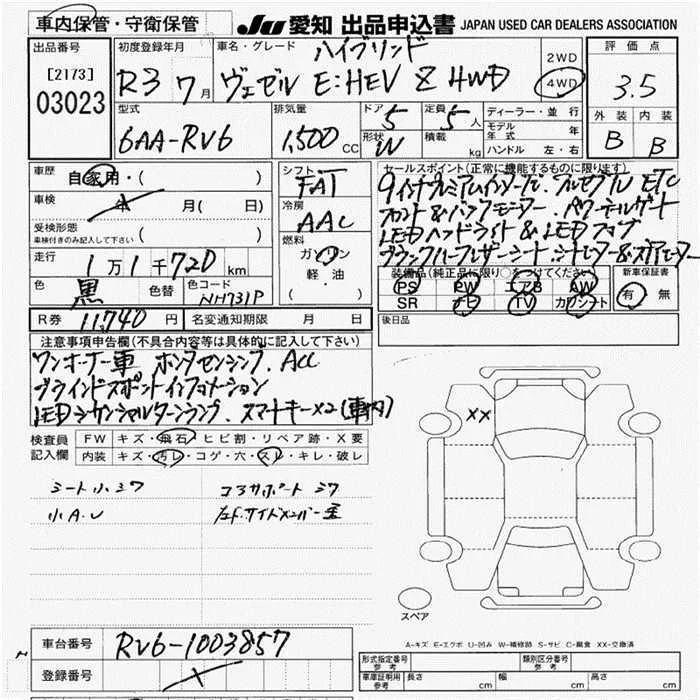 車内保管・守衛保管
JU 愛知 出品申込書 JAPAN USED CAR DEALERS ASSOCIATION
出品番号
[2173]
03023
初度登録年月
R3 7月
車名・グレード
ハイブリッド
ヴェゼル E:HEV Z 4WD
2WD
4WD
評価点
3.5
外装 内装
B B
型式
6AA-RV6
排気量
1,500 CC
ドア 5
形状 W
定員 5 人
積載 kg
ディーラー・並行
モデル年式 年
ハンドル 左・右
車歴 自家用・( )
車検 年 月( 日)
受検形態
車検付きのみ記入して下さい ( )
走行 1万1千720km
色 黒 色替 色コード NH731P
シフト
FAT
冷房
AAC
燃料
ガソリン
軽油
( )
セールスポイント(正常に機能するものに限ります)
9インチプレミアムインターナビ. フルセグTV ETC
フロント&バックモニター. パワーテールゲート
LEDヘッドライト&LEDフォグ
ブラックハーフレザーシート. シートヒーター&ステアヒーター
装備品(純正品に限り○をつけてください)
PS PW エアB AW
SR ナビ TV カワシート
新車保証書
有 無
R券 11,740 円 名変通知期限 月 日
後日品
注意事項申告欄(不具合内容等は具体的に記入して下さい)
ワンオーナー車 ホンダセンシング. ACC
ブラインドスポットインフォメーション
LEDシーケンシャルターンランプ. スマートキー×2(車内)
検査員記入欄
FW キズ・飛石・ヒビ割・リペア跡・X要
内装 キズ・汚レ・コゲ・穴・スレ・キレ・破レ
シート小シワ
小A.U
コアサポートシワ
左f.サイドメンバー歪
XX
スペア
A-キズ E-エクボ U-凹み W-補修跡 S-サビ C-腐食 XX-交換済
車台番号 RV6-1003857
登録番号
形式指定番号 参考
類別区分番号 参考
車庫証明用 参考 長さ cm 幅 cm 高さ cm